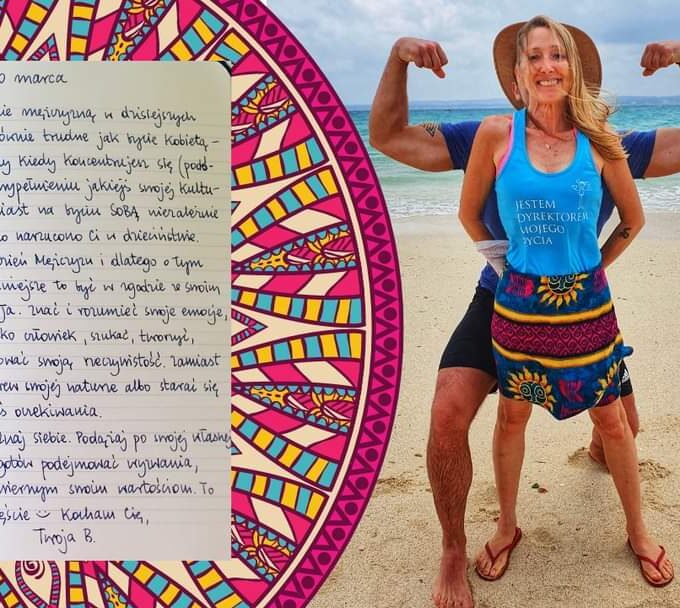 0 marca
ie mężczyzną w dzisiejszych
ównie trudne jak bycie kobietą -
y kiedy koncentrujesz się (podd-
wypełnieniu jakiejś swojej kultu-
iast na byciu SOBĄ niezależnie
o narzucono Ci w dzieciństwie.
zień Mężczyzn i dlatego o tym
niejsze to być w zgodzie ze swoim
Ja. Znać i rozumieć swoje emocje,
ko człowiek, szukać, tworzyć,
ować swoją rzeczywistość. Zamiast
rew swojej naturze albo starać się
ś oczekiwania.
znaj siebie. Podążaj po swojej własnej
gotów podejmować wyzwania,
wiernym swoim wartościom. To
ęście Kocham Cię,
Twoja B.
JESTEM
DYREKTOREM
MOJEGO
ŻYCIA